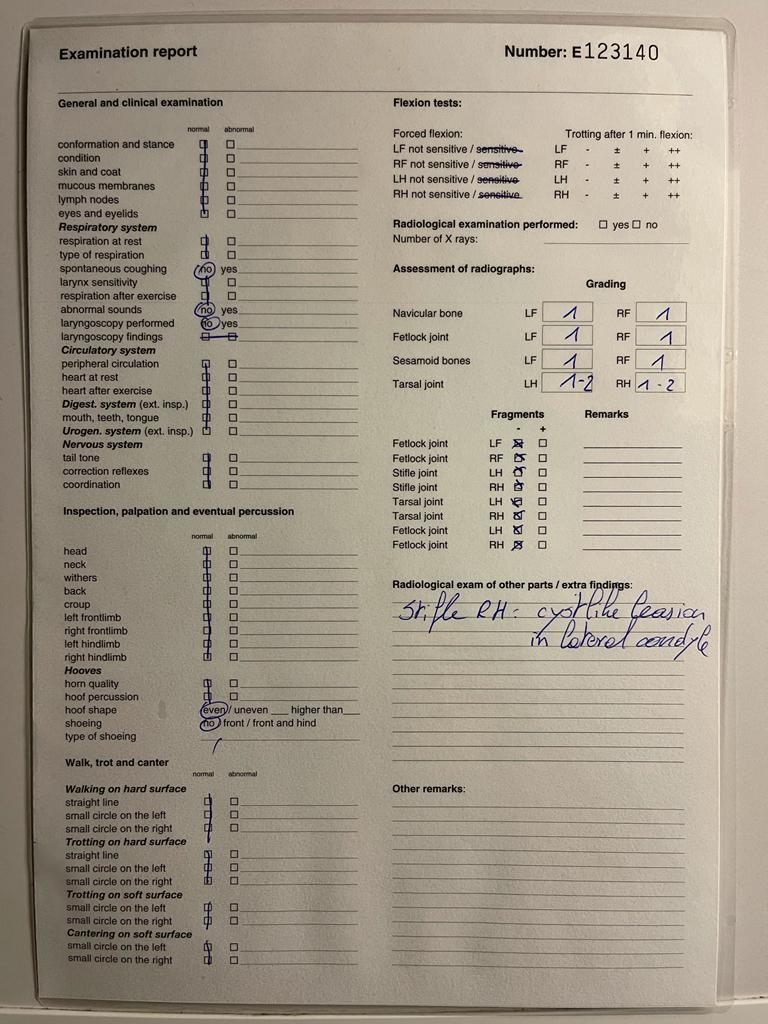 Examination report
Number: E123140
General and clinical examination
normal abnormal
conformation and stance
condition
skin and coat
mucous membranes
lymph nodes
eyes and eyelids
Respiratory system
respiration at rest
type of respiration
spontaneous coughing no yes
larynx sensitivity
respiration after exercise
abnormal sounds no yes
laryngoscopy performed no yes
laryngoscopy findings
Circulatory system
peripheral circulation
heart at rest
heart after exercise
Digest. system (ext. insp.)
mouth, teeth, tongue
Urogen. system (ext. insp.)
Nervous system
tail tone
correction reflexes
coordination
Inspection, palpation and eventual percussion
normal abnormal
head
neck
withers
back
croup
left frontlimb
right frontlimb
left hindlimb
right hindlimb
Hooves
horn quality
hoof percussion
hoof shape even / uneven ___ higher than___
shoeing no / front / front and hind
type of shoeing
Walk, trot and canter
normal abnormal
Walking on hard surface
straight line
small circle on the left
small circle on the right
Trotting on hard surface
straight line
small circle on the left
small circle on the right
Trotting on soft surface
small circle on the left
small circle on the right
Cantering on soft surface
small circle on the left
small circle on the right
Flexion tests:
Forced flexion: Trotting after 1 min. flexion:
LF not sensitive / sensitive LF - ± + ++
RF not sensitive / sensitive RF - ± + ++
LH not sensitive / sensitive LH - ± + ++
RH not sensitive / sensitive RH - ± + ++
Radiological examination performed: yes no
Number of X rays:
Assessment of radiographs:
Grading
Navicular bone LF 1 RF 1
Fetlock joint LF 1 RF 1
Sesamoid bones LF 1 RF 1
Tarsal joint LH 1-2 RH 1-2
Fragments Remarks
- +
Fetlock joint LF
Fetlock joint RF
Stifle joint LH
Stifle joint RH
Tarsal joint LH
Tarsal joint RH
Fetlock joint LH
Fetlock joint RH
Radiological exam of other parts / extra findings:
Stifle RH: cystlike leasion
in lateral condyle
Other remarks: